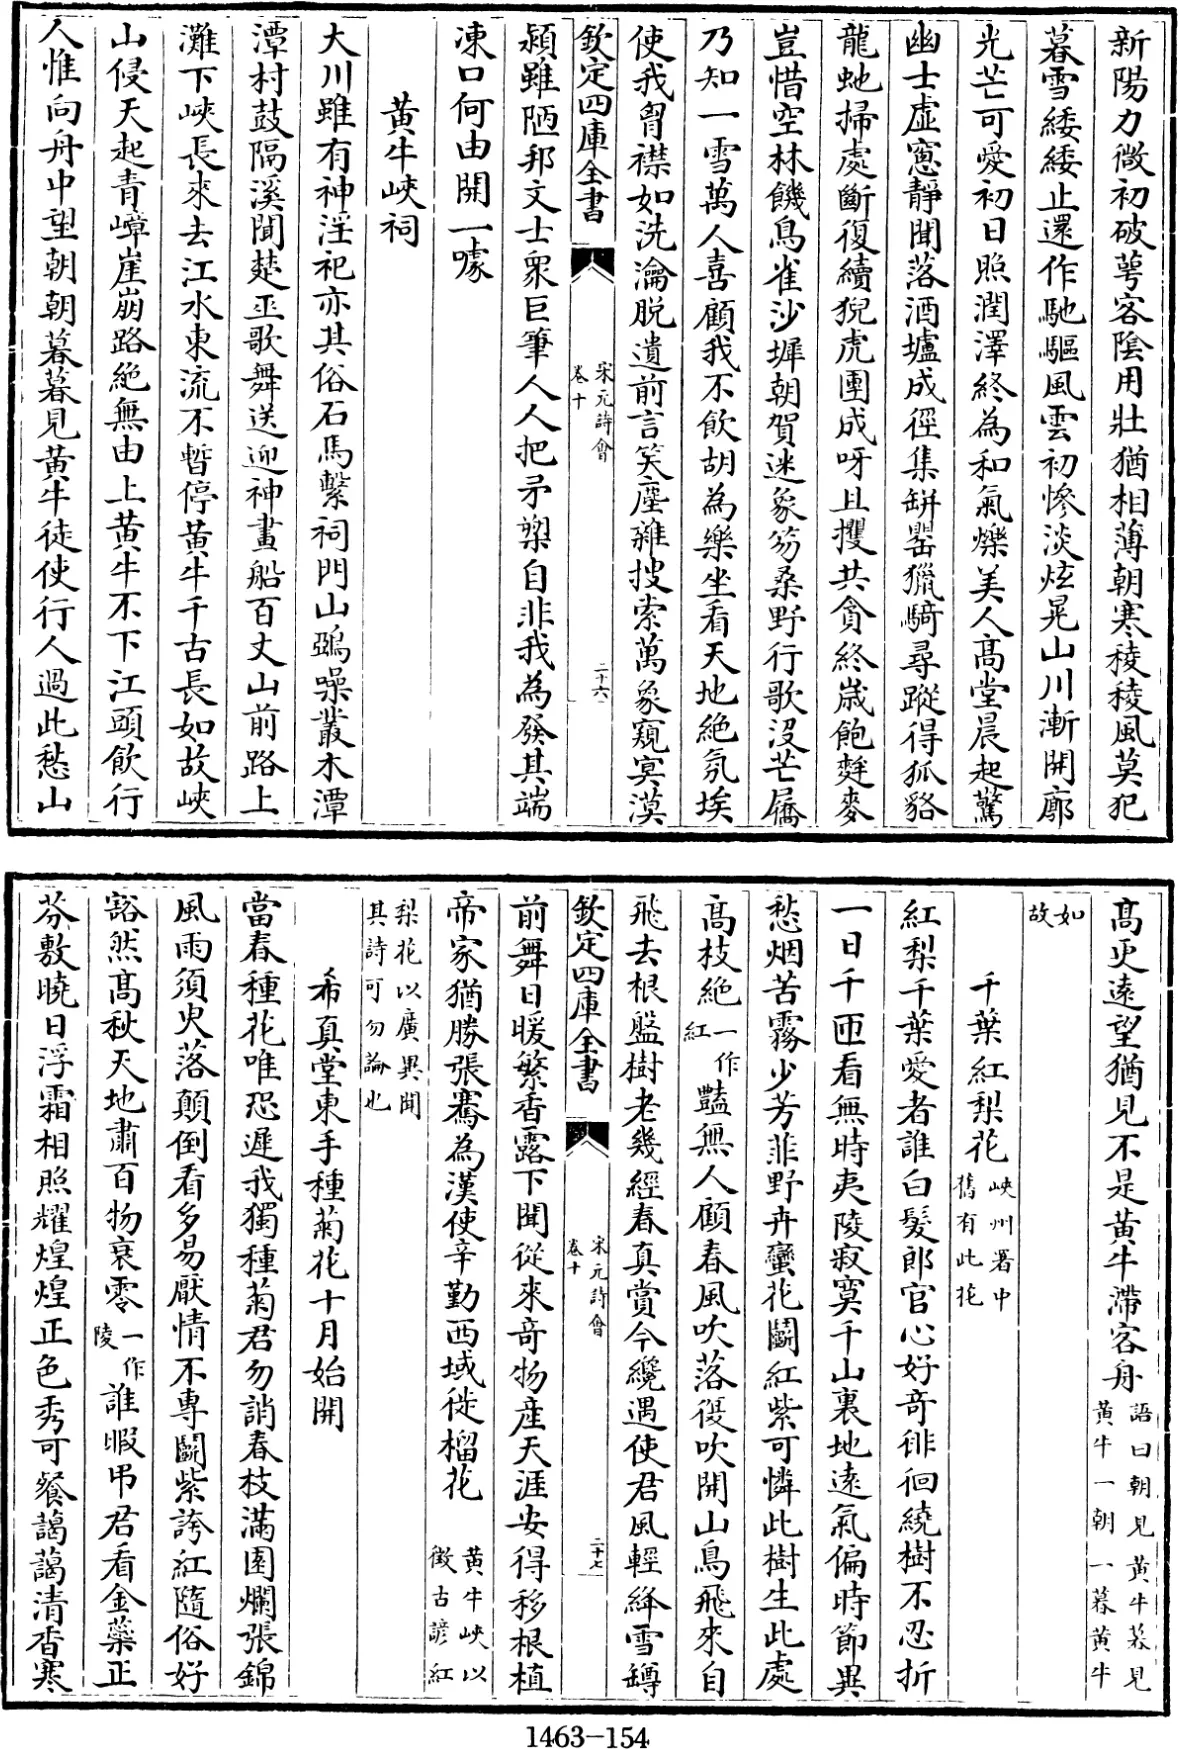 新陽力微初破萼客陰用壯猶相薄朝寒稜稜風莫犯
暮雪緌緌止還作馳驅風雲初慘淡炫晃山川漸開廓
光芒可愛初日照潤澤終為和氣爍美人高堂晨起驚
幽士虛窻靜聞落酒壚成徑集缾罌獵騎尋蹤得狐貉
龍蛇掃處斷復續猊虎團成呀且攫共貪終歲飽麰麥
豈惜空林饑鳥雀沙墀朝賀迷象笏桑野行歌没芒屩
乃知一雪萬人喜顧我不飲胡為樂坐看天地絶氛埃
使我胷襟如洗瀹脱遺前言笑塵雜搜索萬象窺冥漠
欽定四庫全書
宋元詩會
卷十
二十六
潁雖陋邦文士衆巨筆人人把矛槊自非我為發其端
凍口何由開一噱
黄牛峽祠
大川雖有神淫祀亦其俗石馬繫祠門山鵶噪叢木潭
潭村鼓隔溪聞楚巫歌舞送迎神畫船百丈山前路上
灘下峽長來去江水東流不暫停黄牛千古長如故峽
山侵天起青嶂崖崩路絶無由上黄牛不下江頭飲行
人惟向舟中望朝朝暮暮見黄牛徒使行人過此愁山
高更遠望猶見不是黄牛滯客舟
語曰朝見黄牛暮見
黄牛一朝一暮黄牛
如
故
千葉紅梨花
峽州署中
舊有此花
紅梨千葉愛者誰白髮郎官心好奇徘徊繞樹不忍折
一日千匝看無時夷陵寂寞千山裏地遠氣偏時節異
愁烟苦霧少芳菲野卉蠻花鬬紅紫可憐此樹生此處
高枝絶
一作
紅
豔無人顧春風吹落復吹開山鳥飛來自
飛去根盤樹老幾經春真賞今纔遇使君風輕絳雪罇
欽定四庫全書
宋元詩會
卷十
二十七
前舞日暖繁香露下聞從來奇物產天涯安得移根植
帝家猶勝張騫為漢使辛勤西域徙榴花
黄牛峽以
徴古諺紅
梨花以廣異聞
其詩可勿論也
希真堂東手種菊花十月始開
當春種花唯恐遲我獨種菊君勿誚春枝滿園爛張錦
風雨須臾落顛倒看多易厭情不專鬬紫誇紅隨俗好
豁然高秋天地肅百物衰零
一作
陵
誰暇弔君看金蘂正
芬敷曉日浮霜相照耀煌煌正色秀可餐藹藹清香寒
1463-154